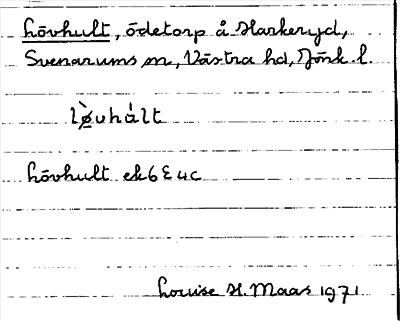 Lövhult, ödetorp å Harkeryd,
Svenarums sn, Västra hd, Jönk. l.
lø̀vhált
Lövhult ek 6 E 4c
Louise H. Maas 1971